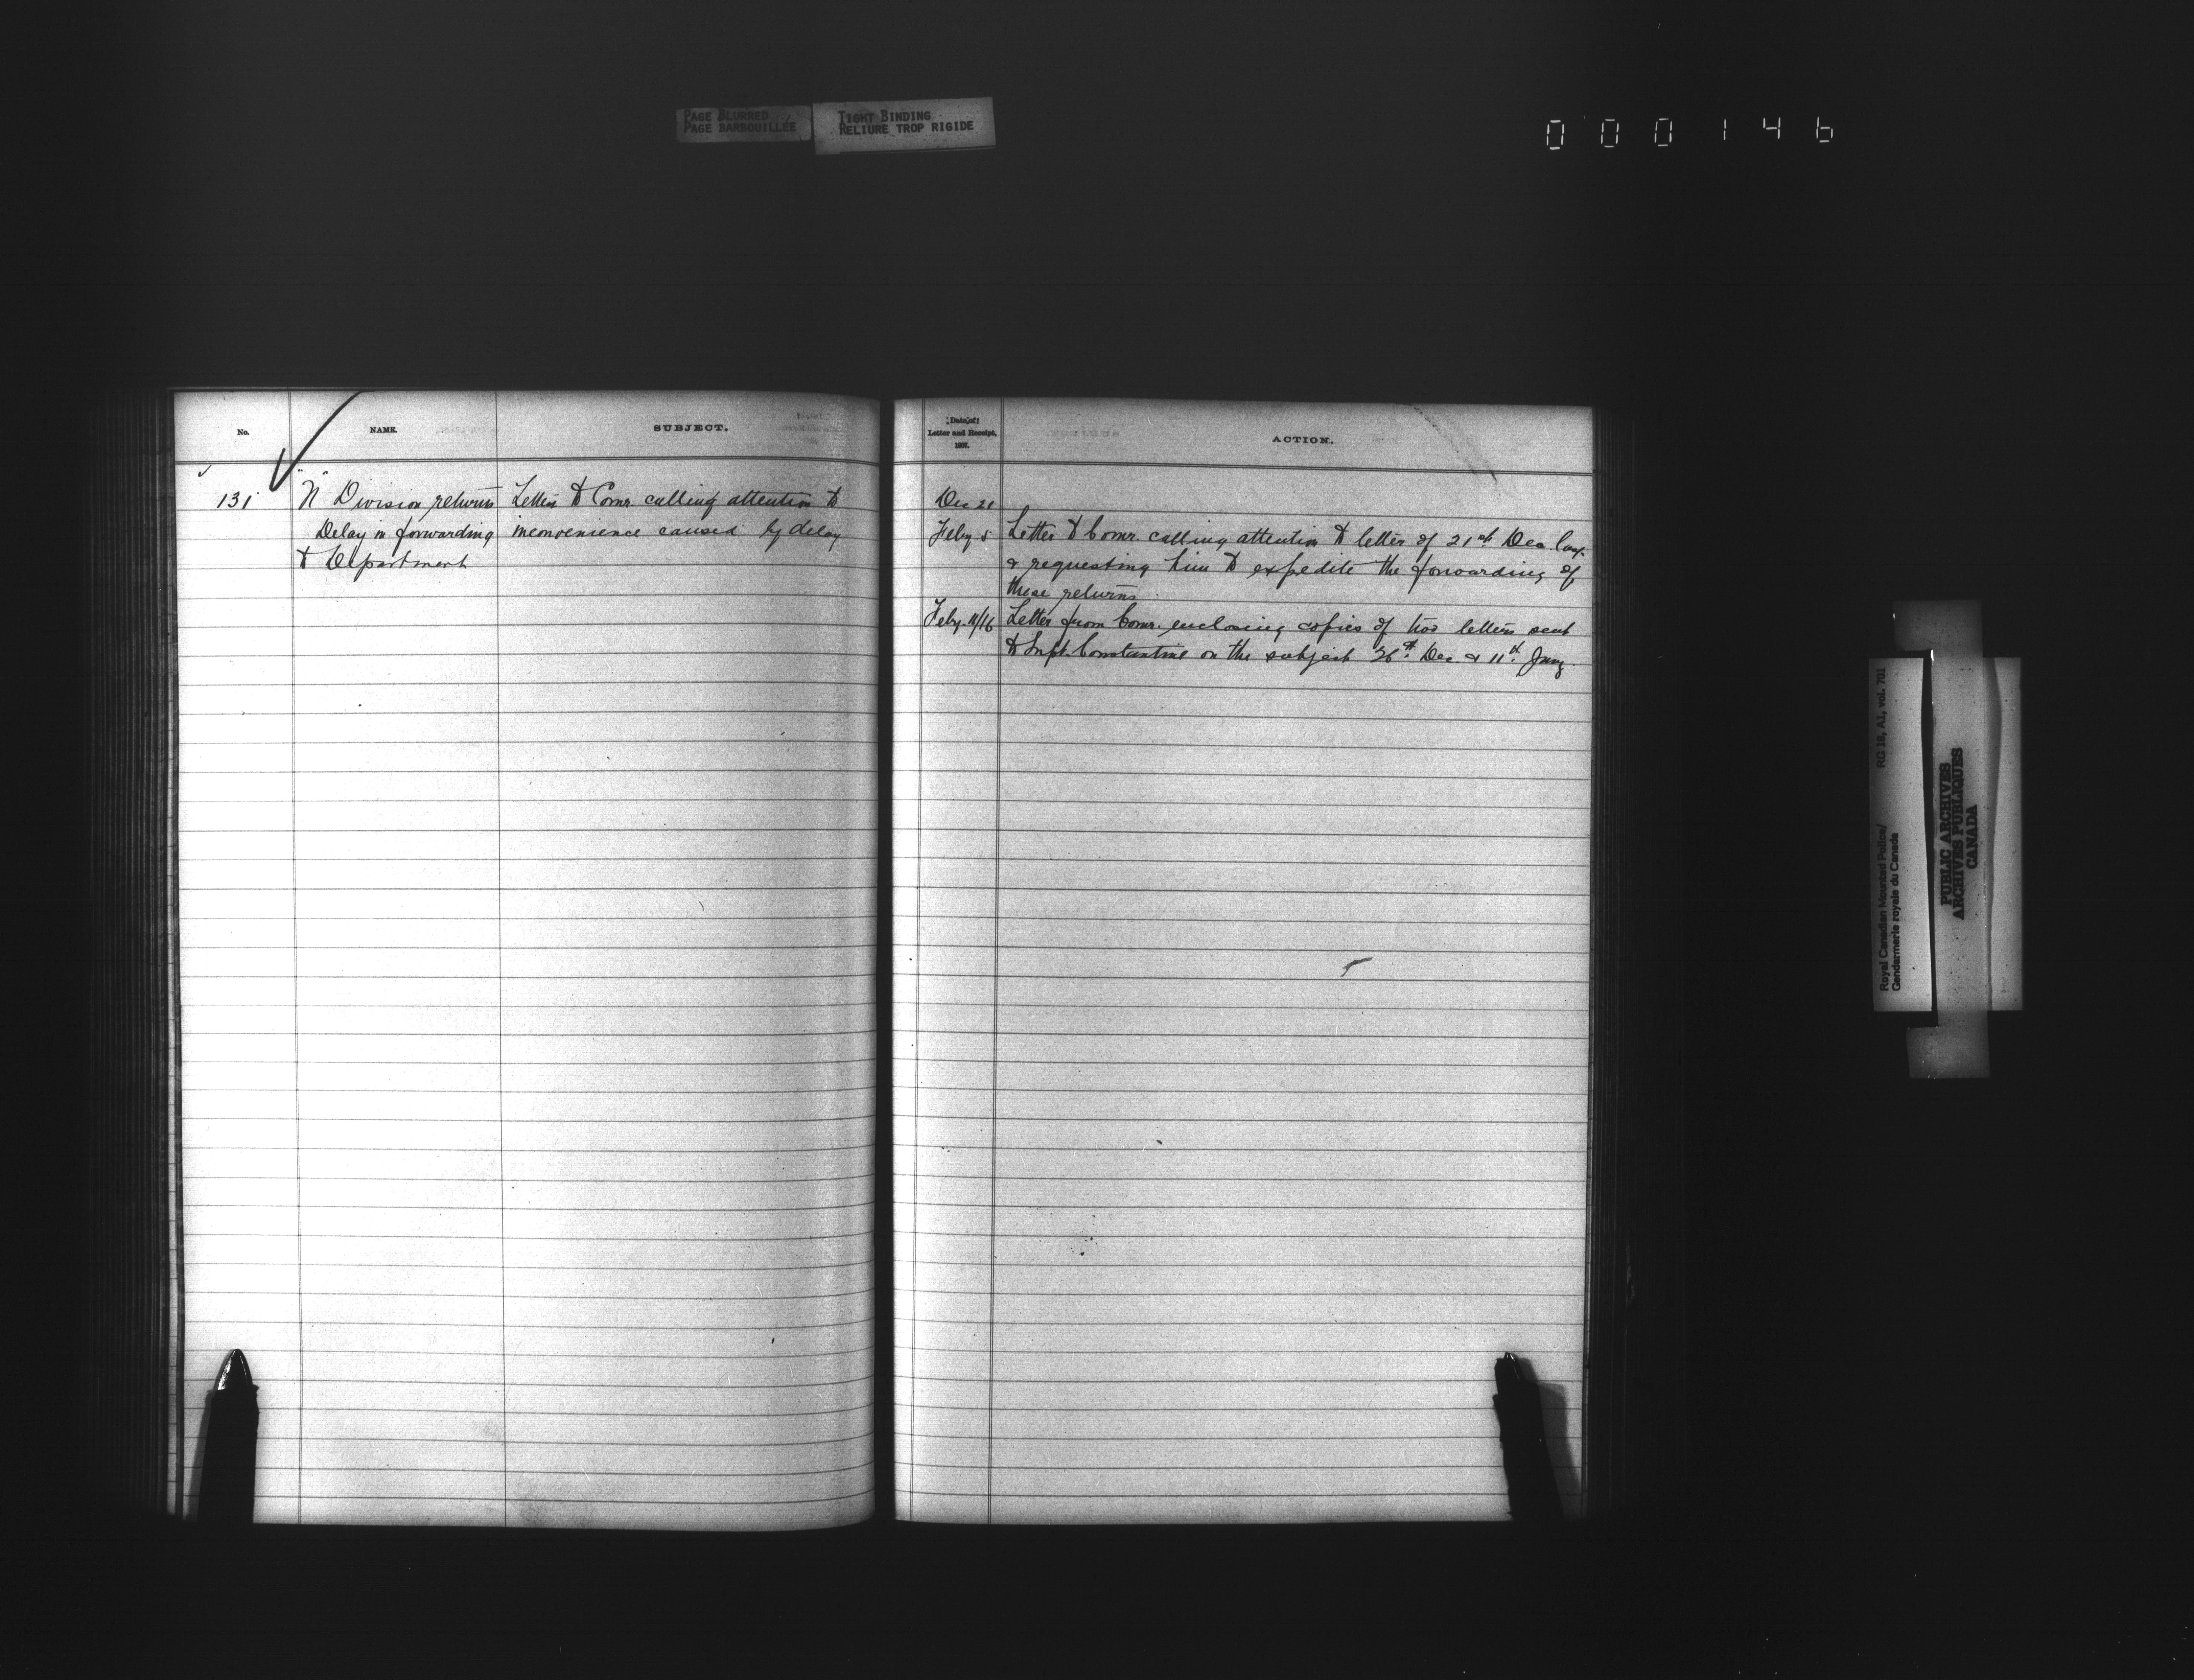 PAGE BLURRED
PAGE BARBOUILLÉE
TIGHT BINDING
RELIURE TROP RIGIDE
000146
No.
NAME.
SUBJECT.
131
"N" Division returns
Delay in forwarding
to Department
Letter to Comr. calling attention to
inconvenience caused by delay
Date of
Letter and Receipt,
1897.
ACTION.
Dec 21
Feby 5
Letter to Comr. calling attention to letter of 21st Dec last
& requesting him to expedite the forwarding of
these returns
Feby. 11/16
Letter from Comr. enclosing copies of two letters sent
to Supt. Constantine on the subject 26th Dec & 11th Jany.
Royal Canadian Mounted Police/
Gendarmerie royale du Canada
RG 18, A1, vol. 701
PUBLIC ARCHIVES
ARCHIVES PUBLIQUES
CANADA